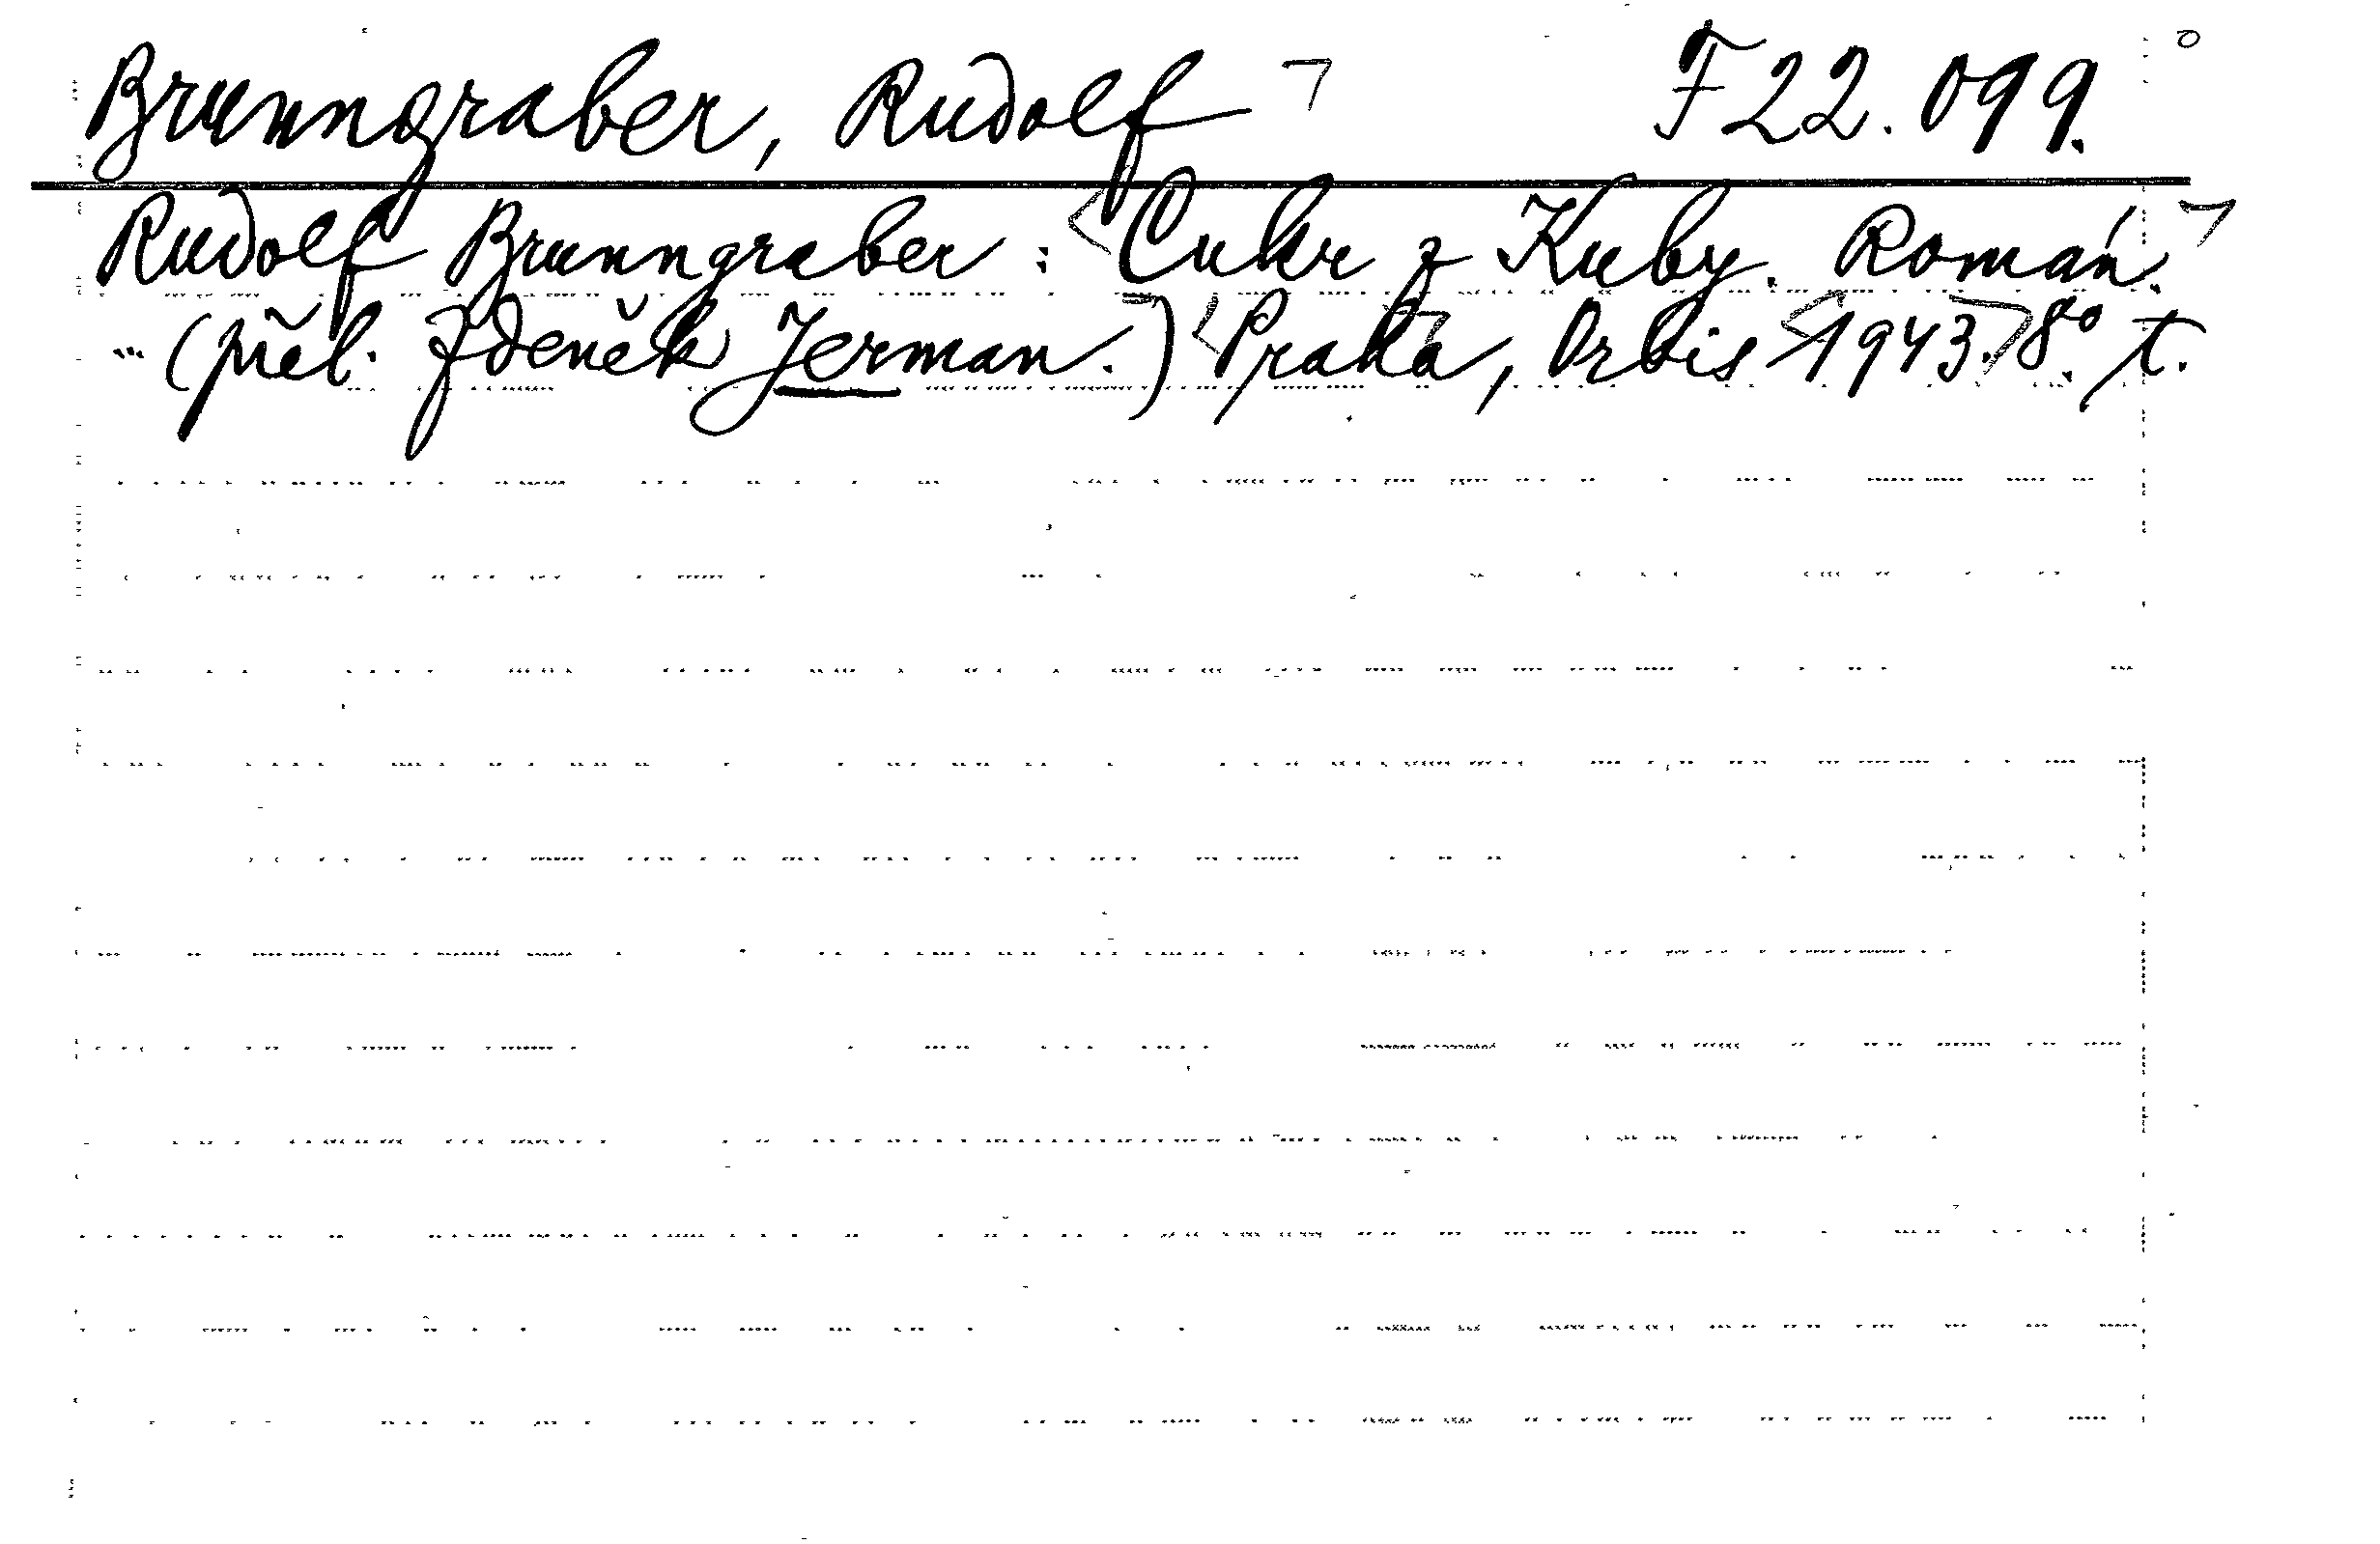 Brunngraber, Rudolf F 22.099.
Rudolf Brunngraber: Cukr z Kuby. Román.
(přel. Zdeněk Jerman.) Praha, Orbis 1943. 8°. t.